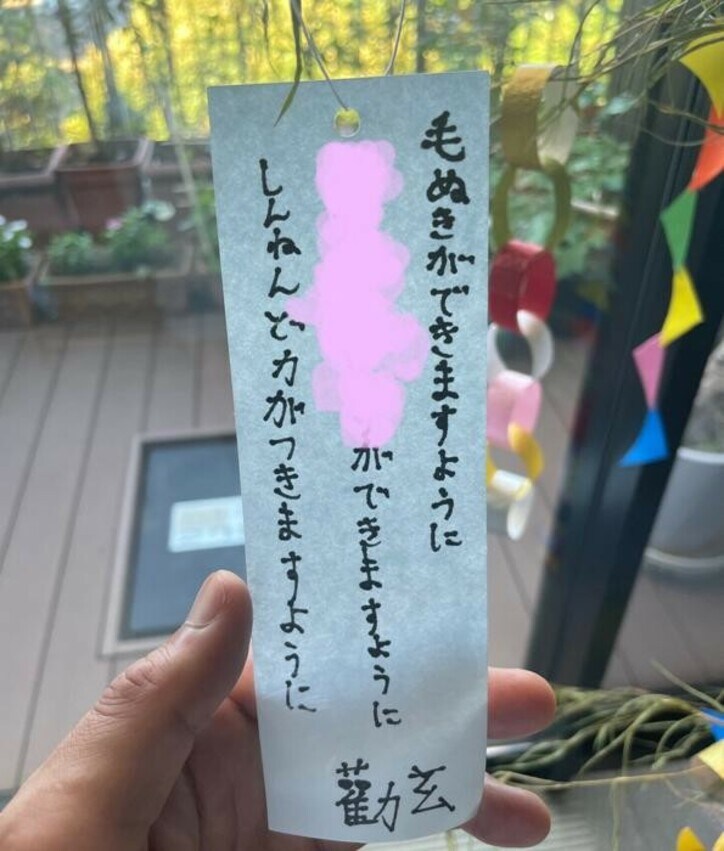 毛ぬきができますように
ができますように
しんねんど力がつきますように
勸玄